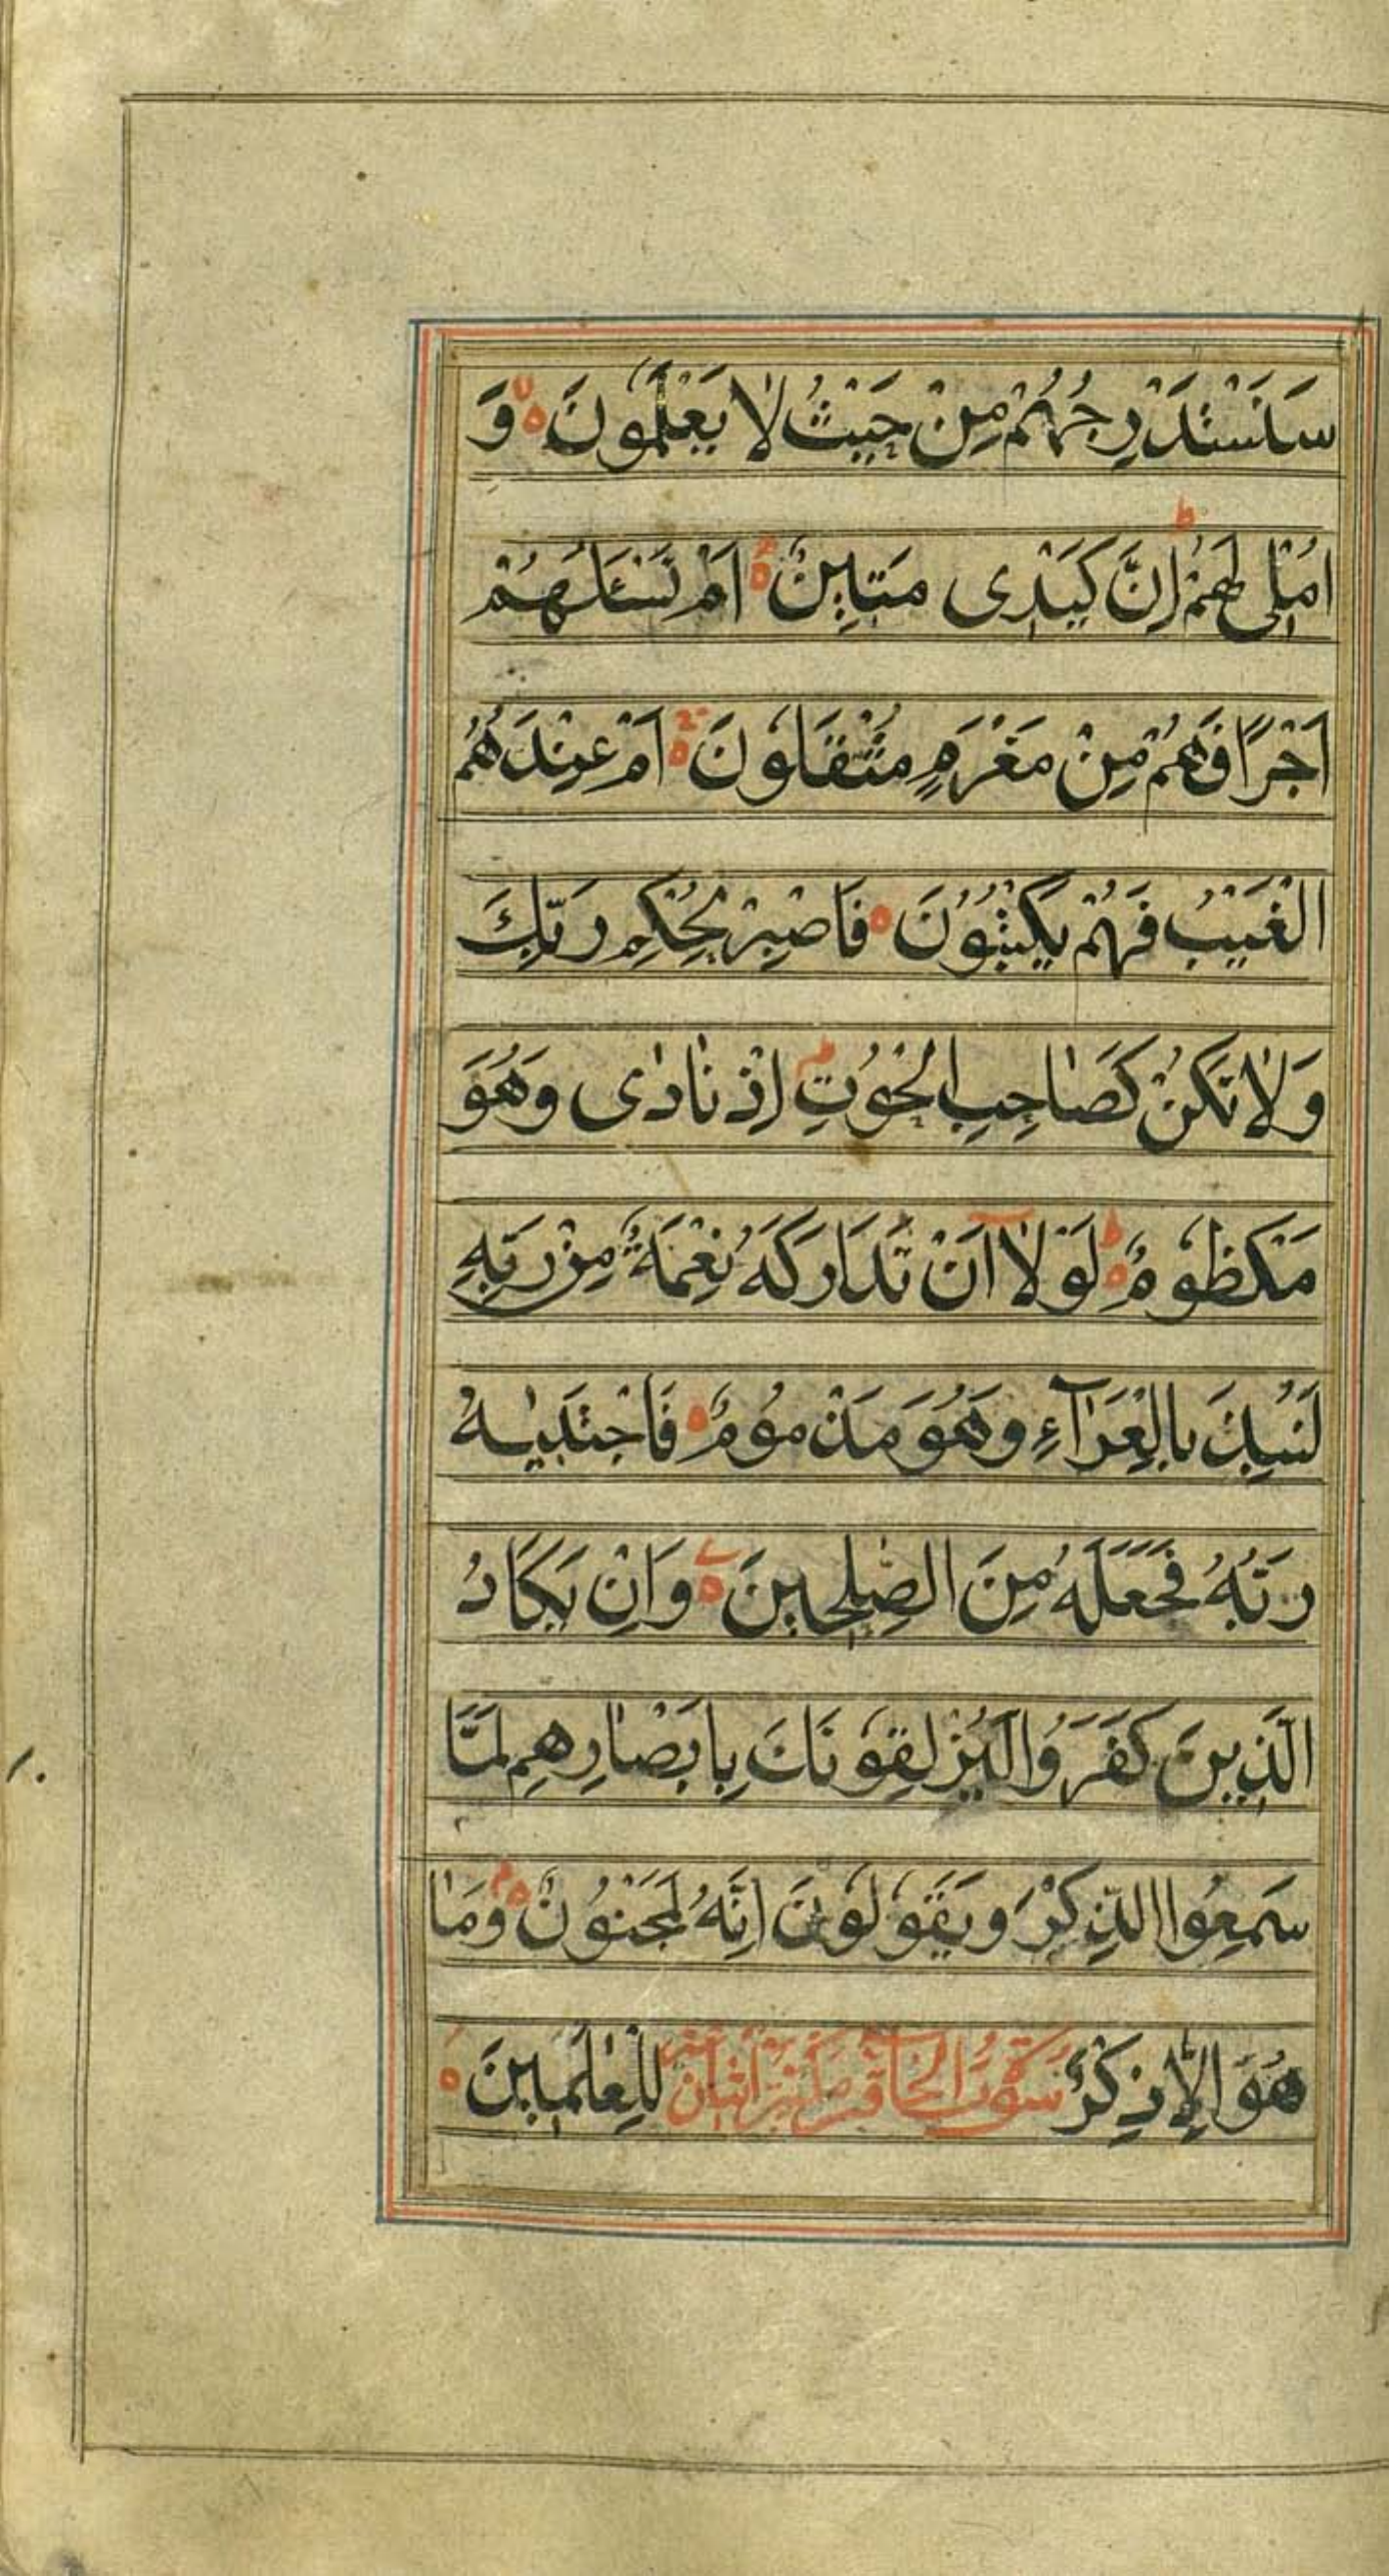 سَنَسْتَدْرِجُهُمْ مِنْ حَيْثُ لَا يَعْلَمُونَ ه وَ
اُمْلِى لَهُمْ ط اِنَّ كَيْدِى مَتِينٌ ه اَمْ تَسْئَلُهُمْ
اَجْرًا فَهُمْ مِنْ مَغْرَمٍ مُثْقَلُونَ ه اَمْ عِنْدَهُمُ
الْغَيْبُ فَهُمْ يَكْتُبُوْنَ ه فَاصْبِرْ لِحُكْمِ رَبِّكَ
وَلَا تَكُنْ كَصَاحِبِ الْحُوْتِ م اِذْ نَادٰى وَهُوَ
مَكْظُومٌ ط ه لَوْلَا اَنْ تَدَارَكَهُ نِعْمَةٌ مِنْ رَبِّهِ
لَنُبِذَ بِالْعَرَآءِ وَهُوَ مَذْمُوْمٌ ه فَاجْتَبٰيهُ
رَبُّهُ فَجَعَلَهُ مِنَ الصّٰلِحِينَ ه وَاِنْ يَكَادُ
الَّذِينَ كَفَرُوا لَيُزْلِقُونَكَ بِاَبْصَارِهِمْ لَمَّا
سَمِعُوا الذِّكْرَ وَيَقُولُونَ اِنَّهُ لَمَجْنُوْنٌ م ه وَمَا
هُوَ اِلَّا ذِكْرٌ سورة الحاقة لِلْعٰلَمِينَ ه